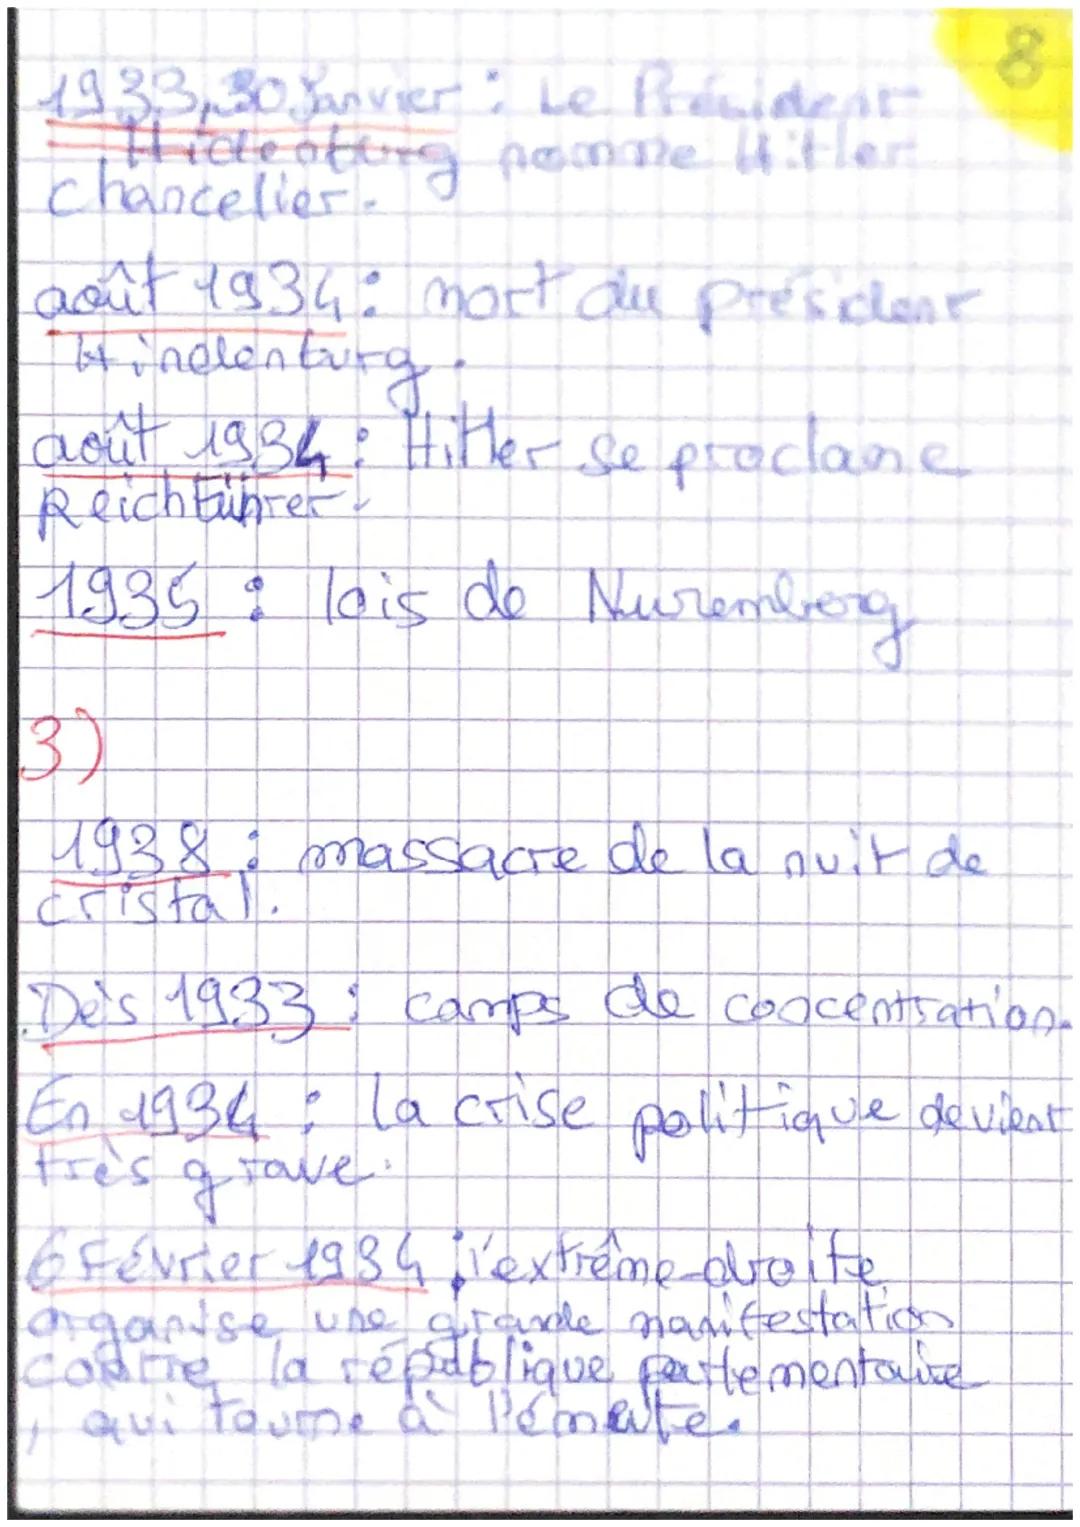 8
1933, 30 Janvier : Le Président
Hidenburg nomme Hitler
chancelier.
août 1934 : mort du président
Hindenburg.
août 1934 : Hitler se proclame
Reichführer.
1935 : lois de Nuremberg
3)
1938 : massacre de la nuit de
cristal.
Dès 1933 : camps de concentration.
En 1934 : la crise politique devient
très grave.
6 Février 1934 : l'extrême-droite
organise une grande manifestation
contre la république parlementaire
, qui tourne à l'émeute.